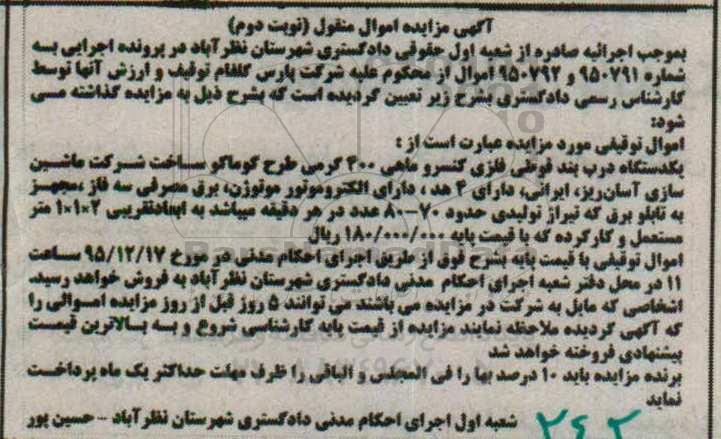 آگهی مزایده اموال منقول (نوبت دوم)
بموجب اجرائیه صادره از شعبه اول حقوقی دادگستری شهرستان نظرآباد در پرونده اجرایی بسه
شماره ۹۵۰۷۹۱ و ۹۵۰۷۹۲ اموال از محکوم علیه شرکت پارس کلفام توقیف و ارزش آنها توسط
کارشناس رسمی دادگستری بشرح زیر تعیین گردیده است که بشرح ذیل به مزایده گذاشته مسی
شود:
اموال توقیفی مورد مزایده عبارت است از :
یکدستگاه درب بند قوطی فلزی کنسرو ماهی ۴۰۰ گرمی طرح کوماکو ساخت شرکت ماشین
سازی آسان‌ریز، ایرانی، دارای ۴ هد ، دارای الکتروموتور موتوژن، برق مصرفی سه فاز ،مجهز
به تابلو برق که تیراژ تولیدی حدود ۷۰-۸۰ عدد در هر دقیقه میباشد به ابعادتقریبی ۲×۱×۱ متر
مستعمل و کارکرده که با قیمت پایه ۱۸۰/۰۰۰/۰۰۰ ریال
اموال توقیفی با قیمت پایه بشرح فوق از طریق اجرای احکام مدنی در مورخ ۹۵/۱۲/۱۷ ساعت
۱۱ در محل دفتر شعبه اجرای احکام مدنی دادگستری شهرستان نظرآباد به فروش خواهد رسید.
اشخاصی که مایل به شرکت در مزایده می باشند می توانند ۵ روز قبل از روز مزایده اموالی را
که آگهی گردیده ملاحظه نمایند مزایده از قیمت پایه کارشناسی شروع و به بالاترین قیمت
پیشنهادی فروخته خواهد شد
برنده مزایده باید ۱۰ درصد بها را فی المجلس و الباقی را ظرف مهلت حداکثر یک ماه پرداخت
نماید
شعبه اول اجرای احکام مدنی دادگستری شهرستان نظرآباد - حسین پور
۲۶۲